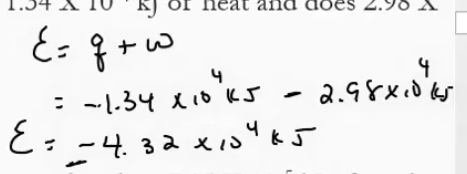 1.34 X 10 kJ of heat and does 2.98 X
ε = q + w
= -1.34 x 10⁴ kJ - 2.98x10⁴ kJ
ε = -4.32 x10⁴ kJ